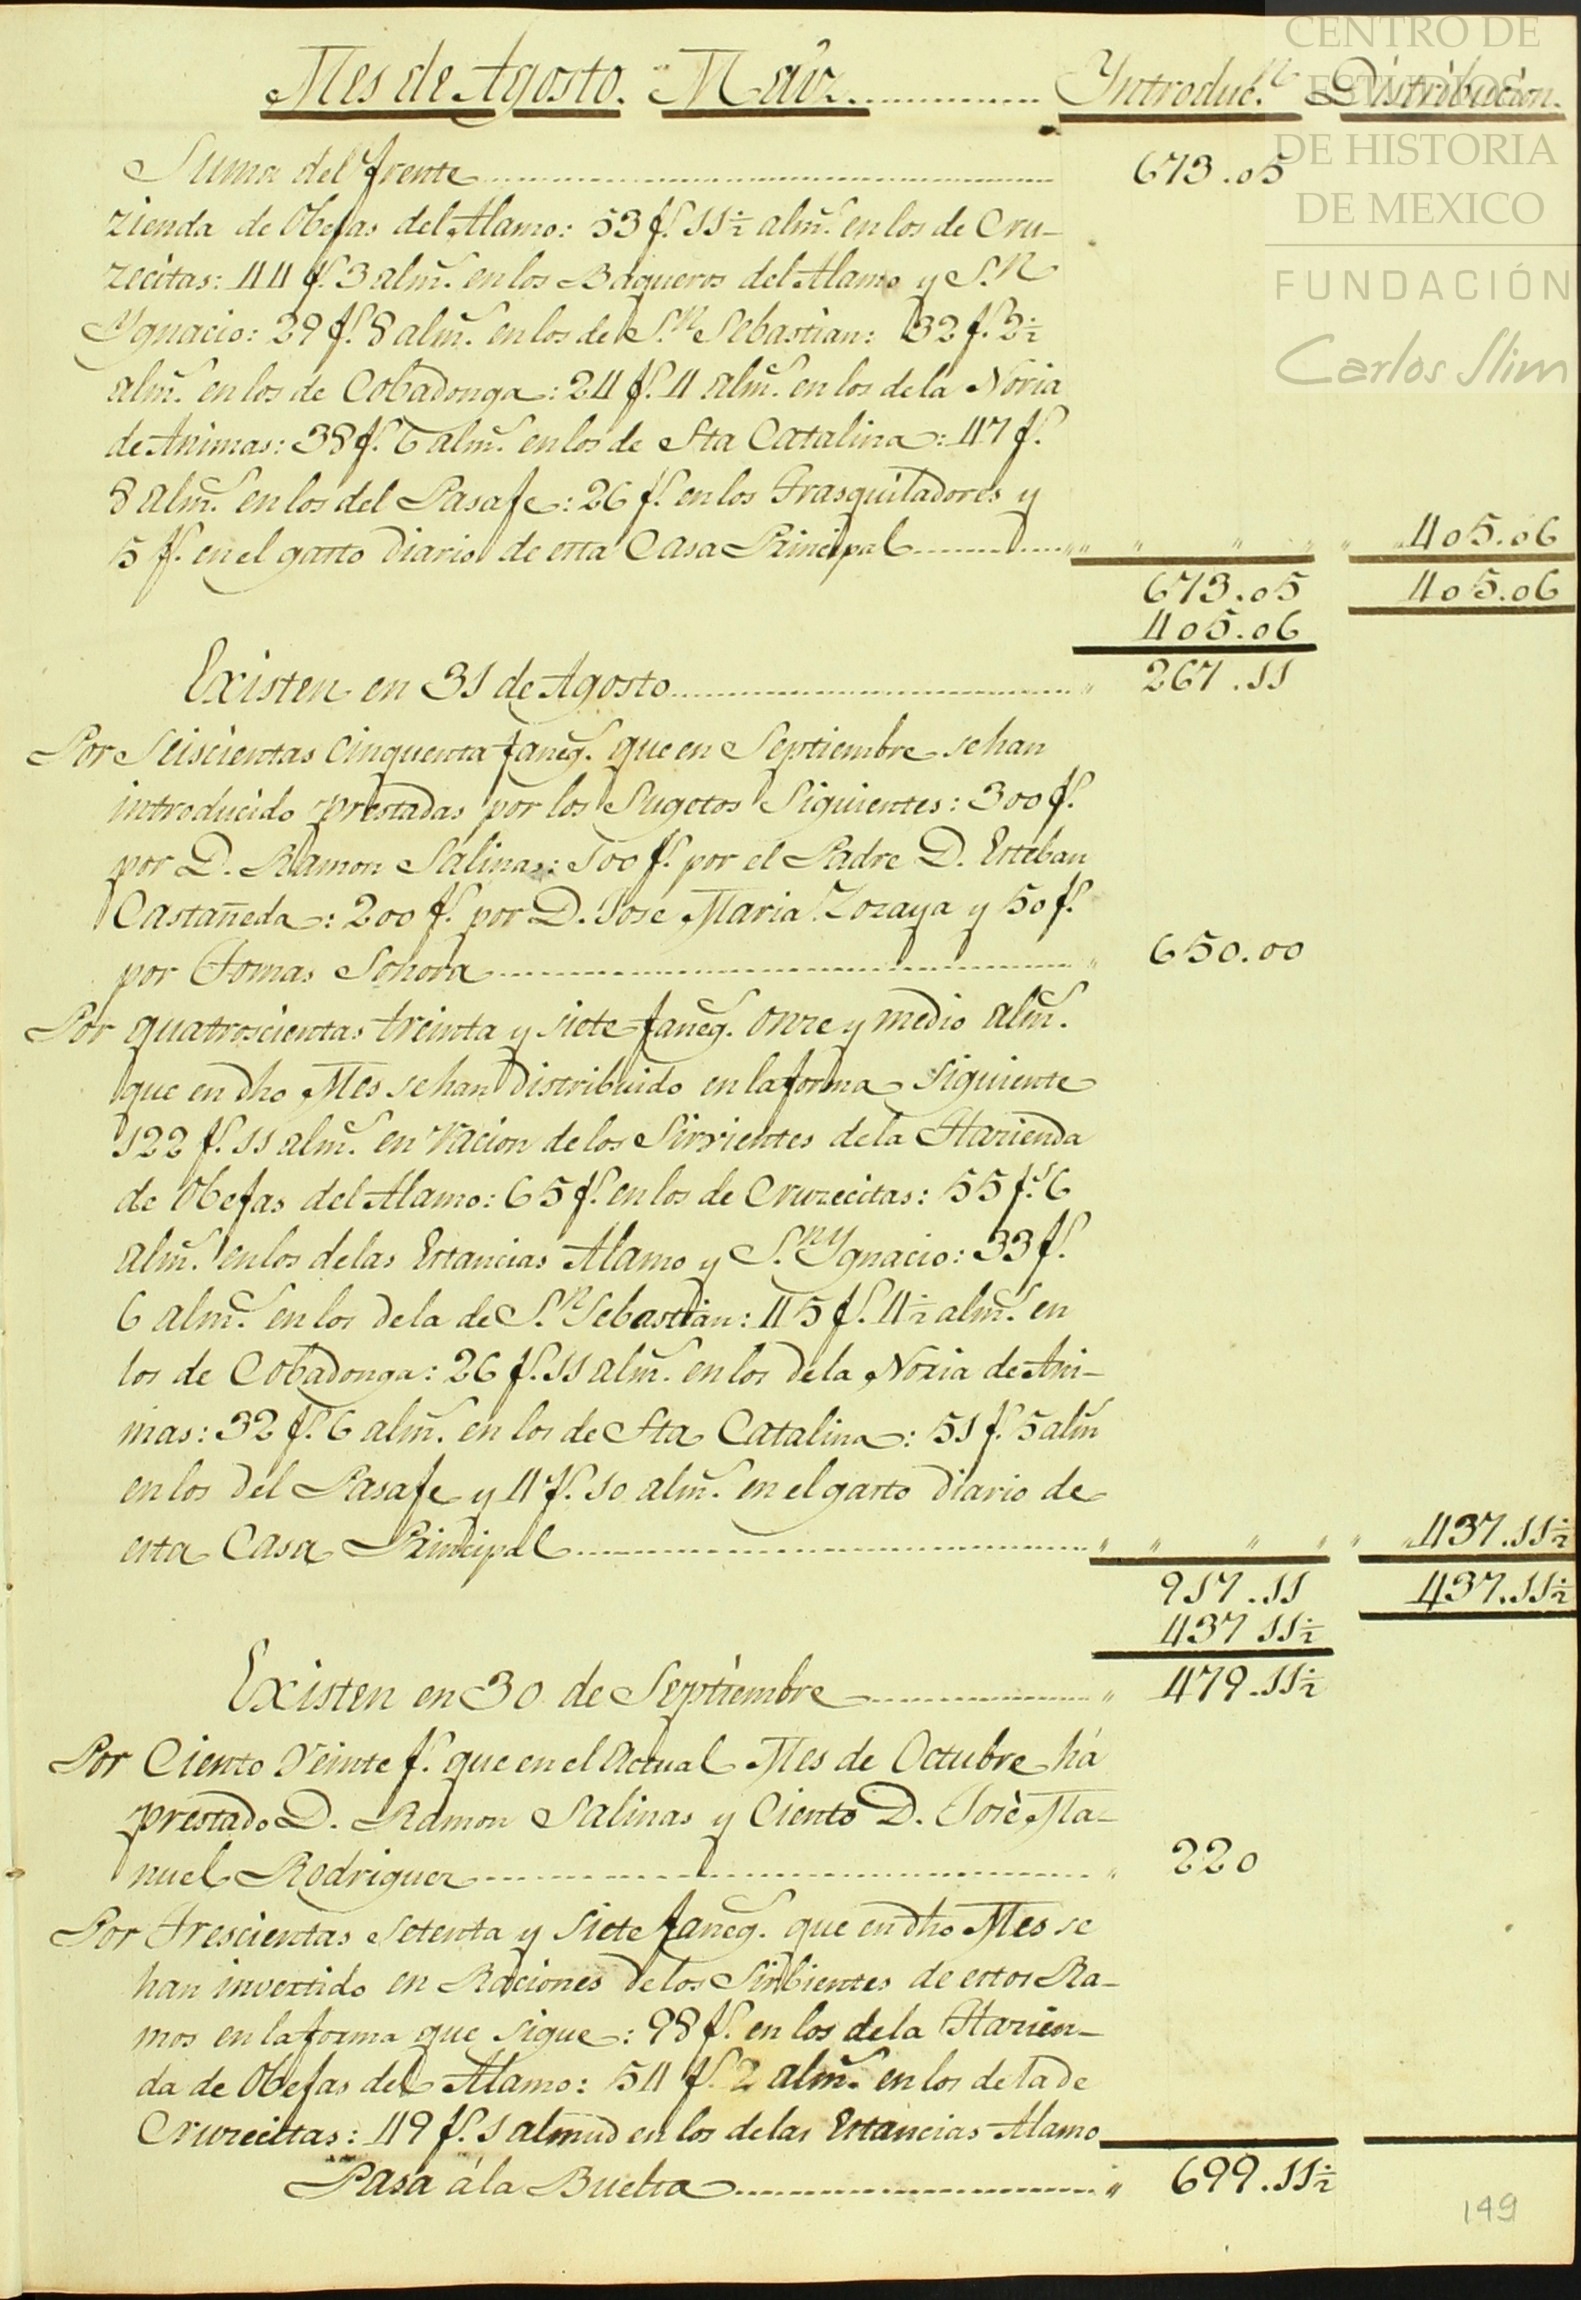 Mes de Agosto. Maiz. Introduc.n Distribucion.
Suma del frente 673.05
zienda de Obejas del Alamo: 53 f.s 11½ alm.s en los de Cru-
zecitas: 44 f.s 3 alm.s en los Baqueros del Alamo y S.n
Ygnacio: 29 f.s 8 alm.s en los de S.n Sebastian: 32 f.s 2½
alm.s en los de Cobadonga: 24 f.s 4 alm.s en los de la Noria
de Animas: 38 f.s 6 alm.s en los de Sta Catalina: 47 f.s
8 alm.s en los del Pasaje: 26 f.s en los Trasquiladores y
5 f.s en el gasto diario de esta Casa Principal " " " " " " 405.06
673.05 405.06
405.06
Existen en 31 de Agosto " 267.11
Por Seiscientas Cinquenta faneg.s que en Septiembre se han
introducido prestadas por los Sugetos Siguientes: 300 f.s
por D. Ramon Salinas: 100 f.s por el Padre D. Esteban
Castañeda: 200 f.s por D. Jose Maria Zozaya y 50 f.s
por Tomas Sonora " 650.00
Por quatroscientas treinta y siete faneg.s onze y medio alm.s
que en dho Mes se han distribuido en la forma Siguiente
122 f.s 11 alm.s en racion de los Sirvientes de la Hazienda
de Obejas del Alamo: 65 f.s en los de Cruzecitas: 55 f.s 6
alm.s en los de las Estancias Alamo y S.n Ygnacio: 33 f.s
6 alm.s en los de la de S.n Sebastian: 45 f.s 4½ alm.s en
los de Cobadonga: 26 f.s 11 alm.s en los de la Noria de Ani-
mas: 32 f.s 6 alm.s en los de Sta Catalina: 51 f.s 5 alm.s
en los del Pasaje y 4 f.s 10 alm.s en el gasto diario de
esta Casa Principal " " " " " " 437.11½
917.11 437.11½
437 11½
Existen en 30 de Septiembre " 479.11½
Por Ciento Veinte f.s que en el Actual Mes de Octubre há
prestado D. Ramon Salinas y Ciento D. José Ma-
nuel Rodriguez " 220
Por Trescientas Setenta y Siete faneg.s que en dho Mes se
han invertido en Raciones de los Sirbientes de estos Ra-
mos en la forma que sigue: 98 f.s en los de la Hazien-
da de Obejas del Alamo: 54 f.s 2 alm.s en los de la de
Cruzecitas: 49 f.s 1 almud en los de las Estancias Alamo
Pasa á la Buelta " 699.11½
149
CENTRO DE
ESTUDIOS
DE HISTORIA
DE MEXICO
FUNDACIÓN
Carlos Slim